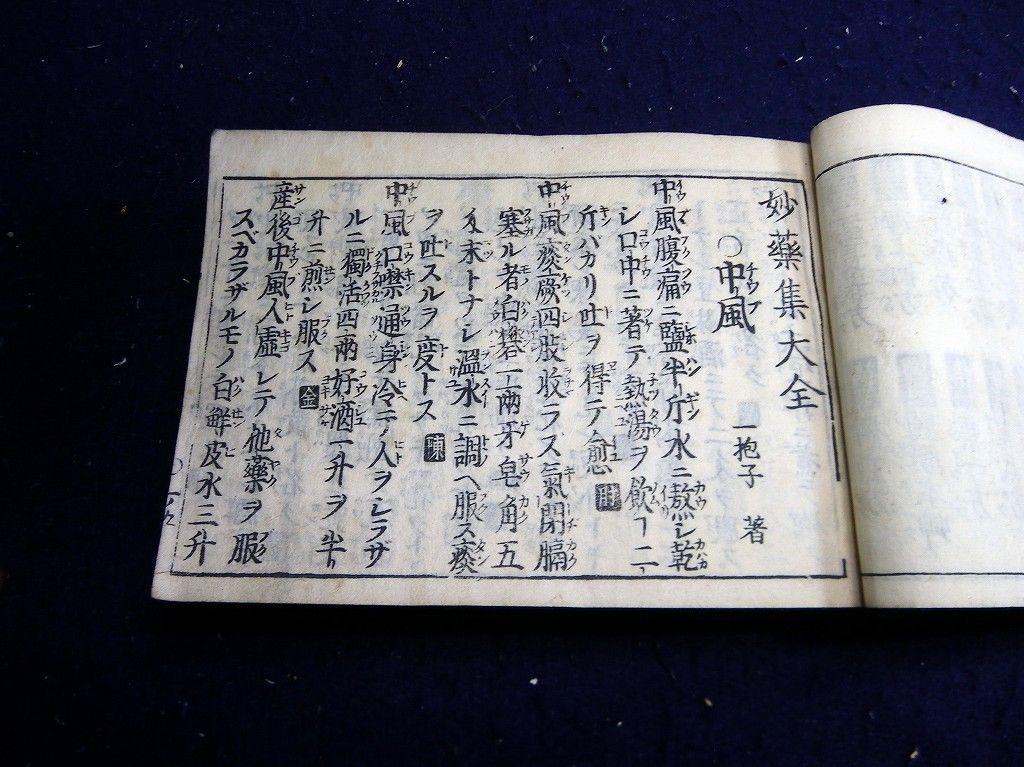 妙藥集大全
一抱子 著
○中風
中風腹痛ニ鹽半斤水ニ熬シ乾
シ口中ニ著テ熱湯ヲ飲フ二
斤バカリ吐ヲ得テ愈
中風痰厥四肢收ラス氣閉膈
塞ル者白礬一兩牙皂角五
匁末トナシ溫水ニ調ヘ服ス痰
ヲ吐スルヲ度トス 陳
中風口噤通身冷テ人ヲシラザ
ルニ獨活四兩好酒一升ヲ半
升ニ煎シ服ス 金
産後中風人虛シテ他藥ヲ服
スベカラザルモノ白鮮皮水三升